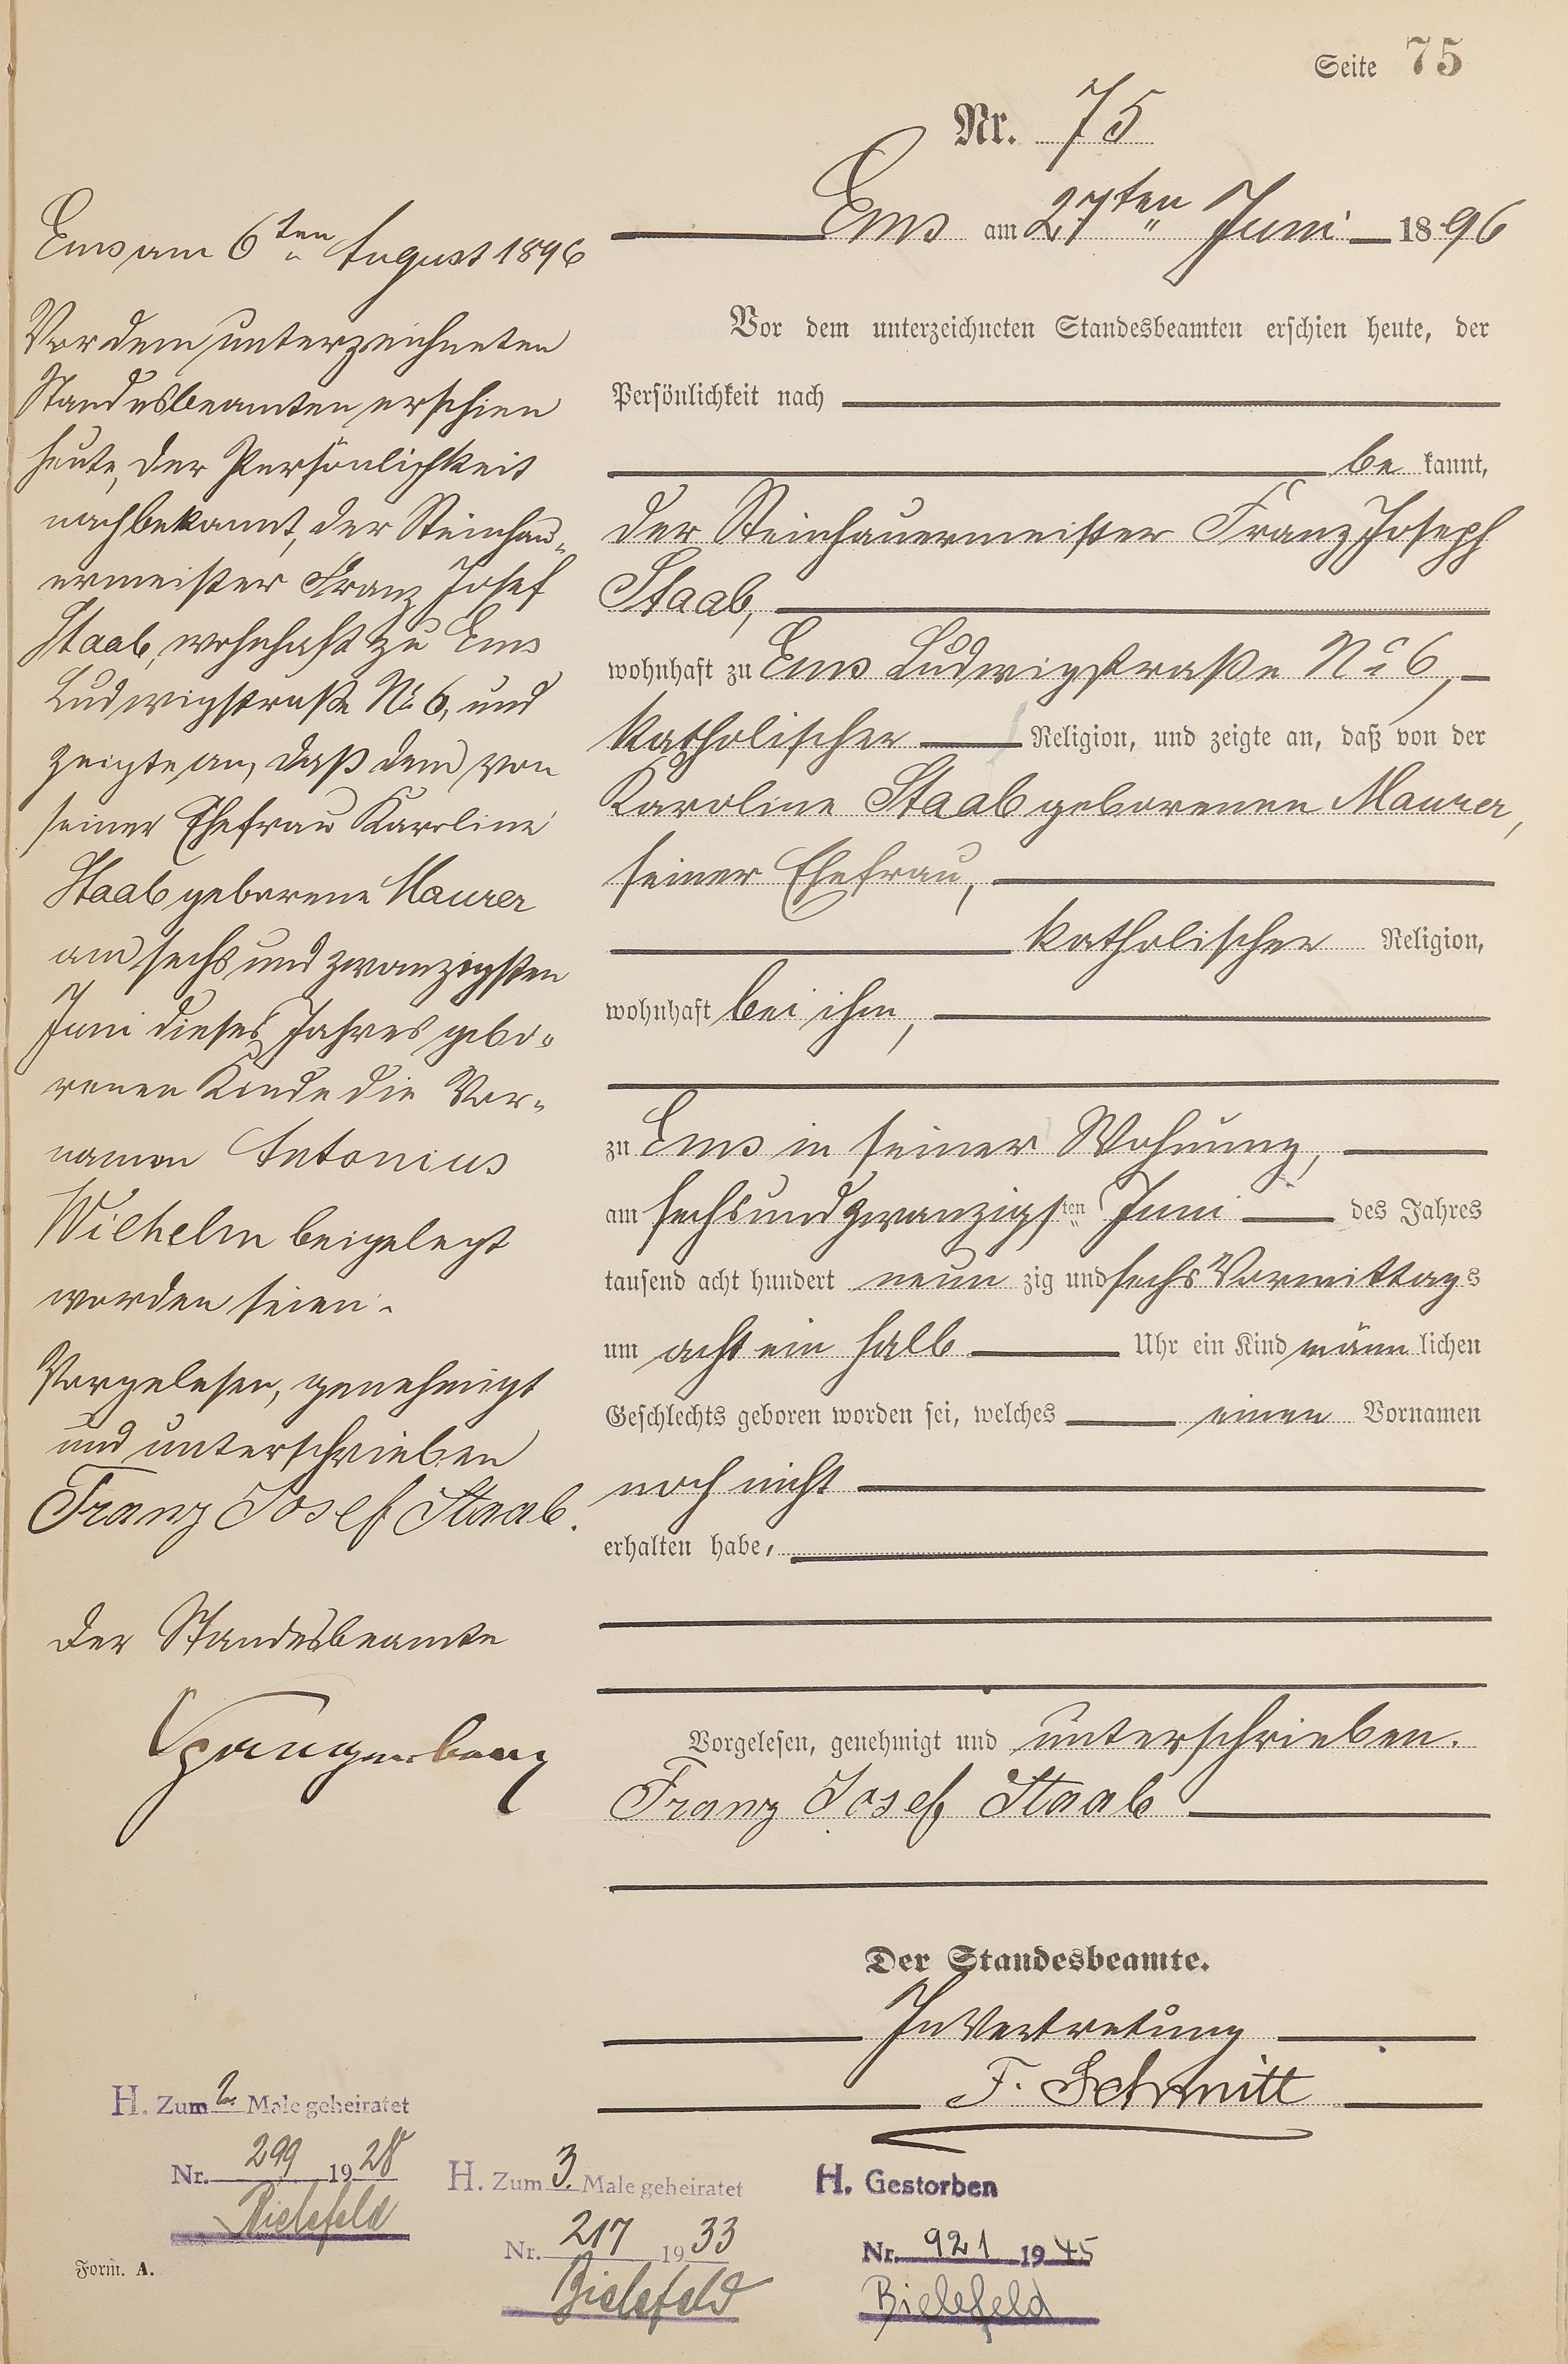 Seite 75
Nr. 75
Ems am 27ten Juni 1896
Vor dem unterzeichneten Standesbeamten erschien heute, der
Persönlichkeit nach
be kannt,
der Steinhauermeister Franz Joseph
Staab,
wohnhaft zu Ems Ludwigstraße No 6,
katholischer Religion, und zeigte an, daß von der
Karoline Staab geborenen Maurer,
seiner Ehefrau,
katholischer Religion,
wohnhaft bei ihm,
zu Ems in seiner Wohnung,
am sechsundzwanzigsten Juni des Jahres
tausend acht hundert neun zig und sechs Vormittags
um acht ein halb Uhr ein Kind männ lichen
Geschlechts geboren worden sei, welches einen Vornamen
noch nicht
erhalten habe,
Vorgelesen, genehmigt und unterschrieben.
Franz Josef Staab
Der Standesbeamte.
In Vertretung
F. Schmitt
Ems am 6ten August 1896
Vor dem unterzeichneten
Standesbeamten erschien
heute, der Persönlichkeit
nach bekannt, der Steinhau-
ermeister Franz Josef
Staab, wohnhaft zu Ems
Ludwigstraße No 6, und
zeigte an, daß dem von
seiner Ehefrau Karoline
Staab geborene Maurer
am sechs und zwanzigsten
Juni dieses Jahres gebo-
renen Kinde die Vor-
namen Antonius
Wilhelm beigelegt
worden seien.
Vorgelesen, genehmigt
und unterschrieben
Franz Josef Staab.
Der Standesbeamte
Spangenberg
H. Zum 2. Male geheiratet
Nr. 299 1928
Bielefeld
H. Zum 3. Male geheiratet
Nr. 217 1933
Bielefeld
H. Gestorben
Nr. 921 1945
Bielefeld
Form. A.